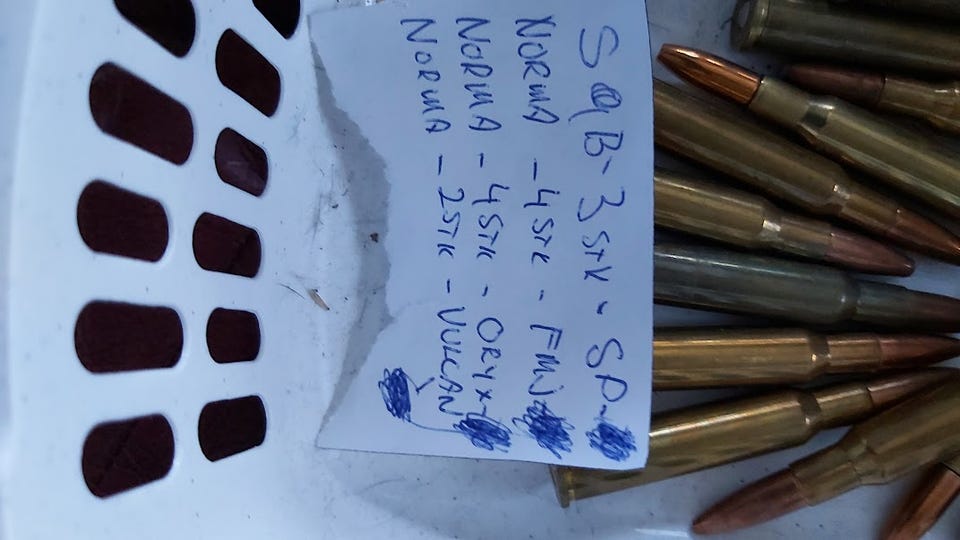 S&B - 3 STK - SP -
NORMA - 4 STK - FMJ
NORMA - 4 STK - ORYX -
NORMA - 2 STK - VULCAN